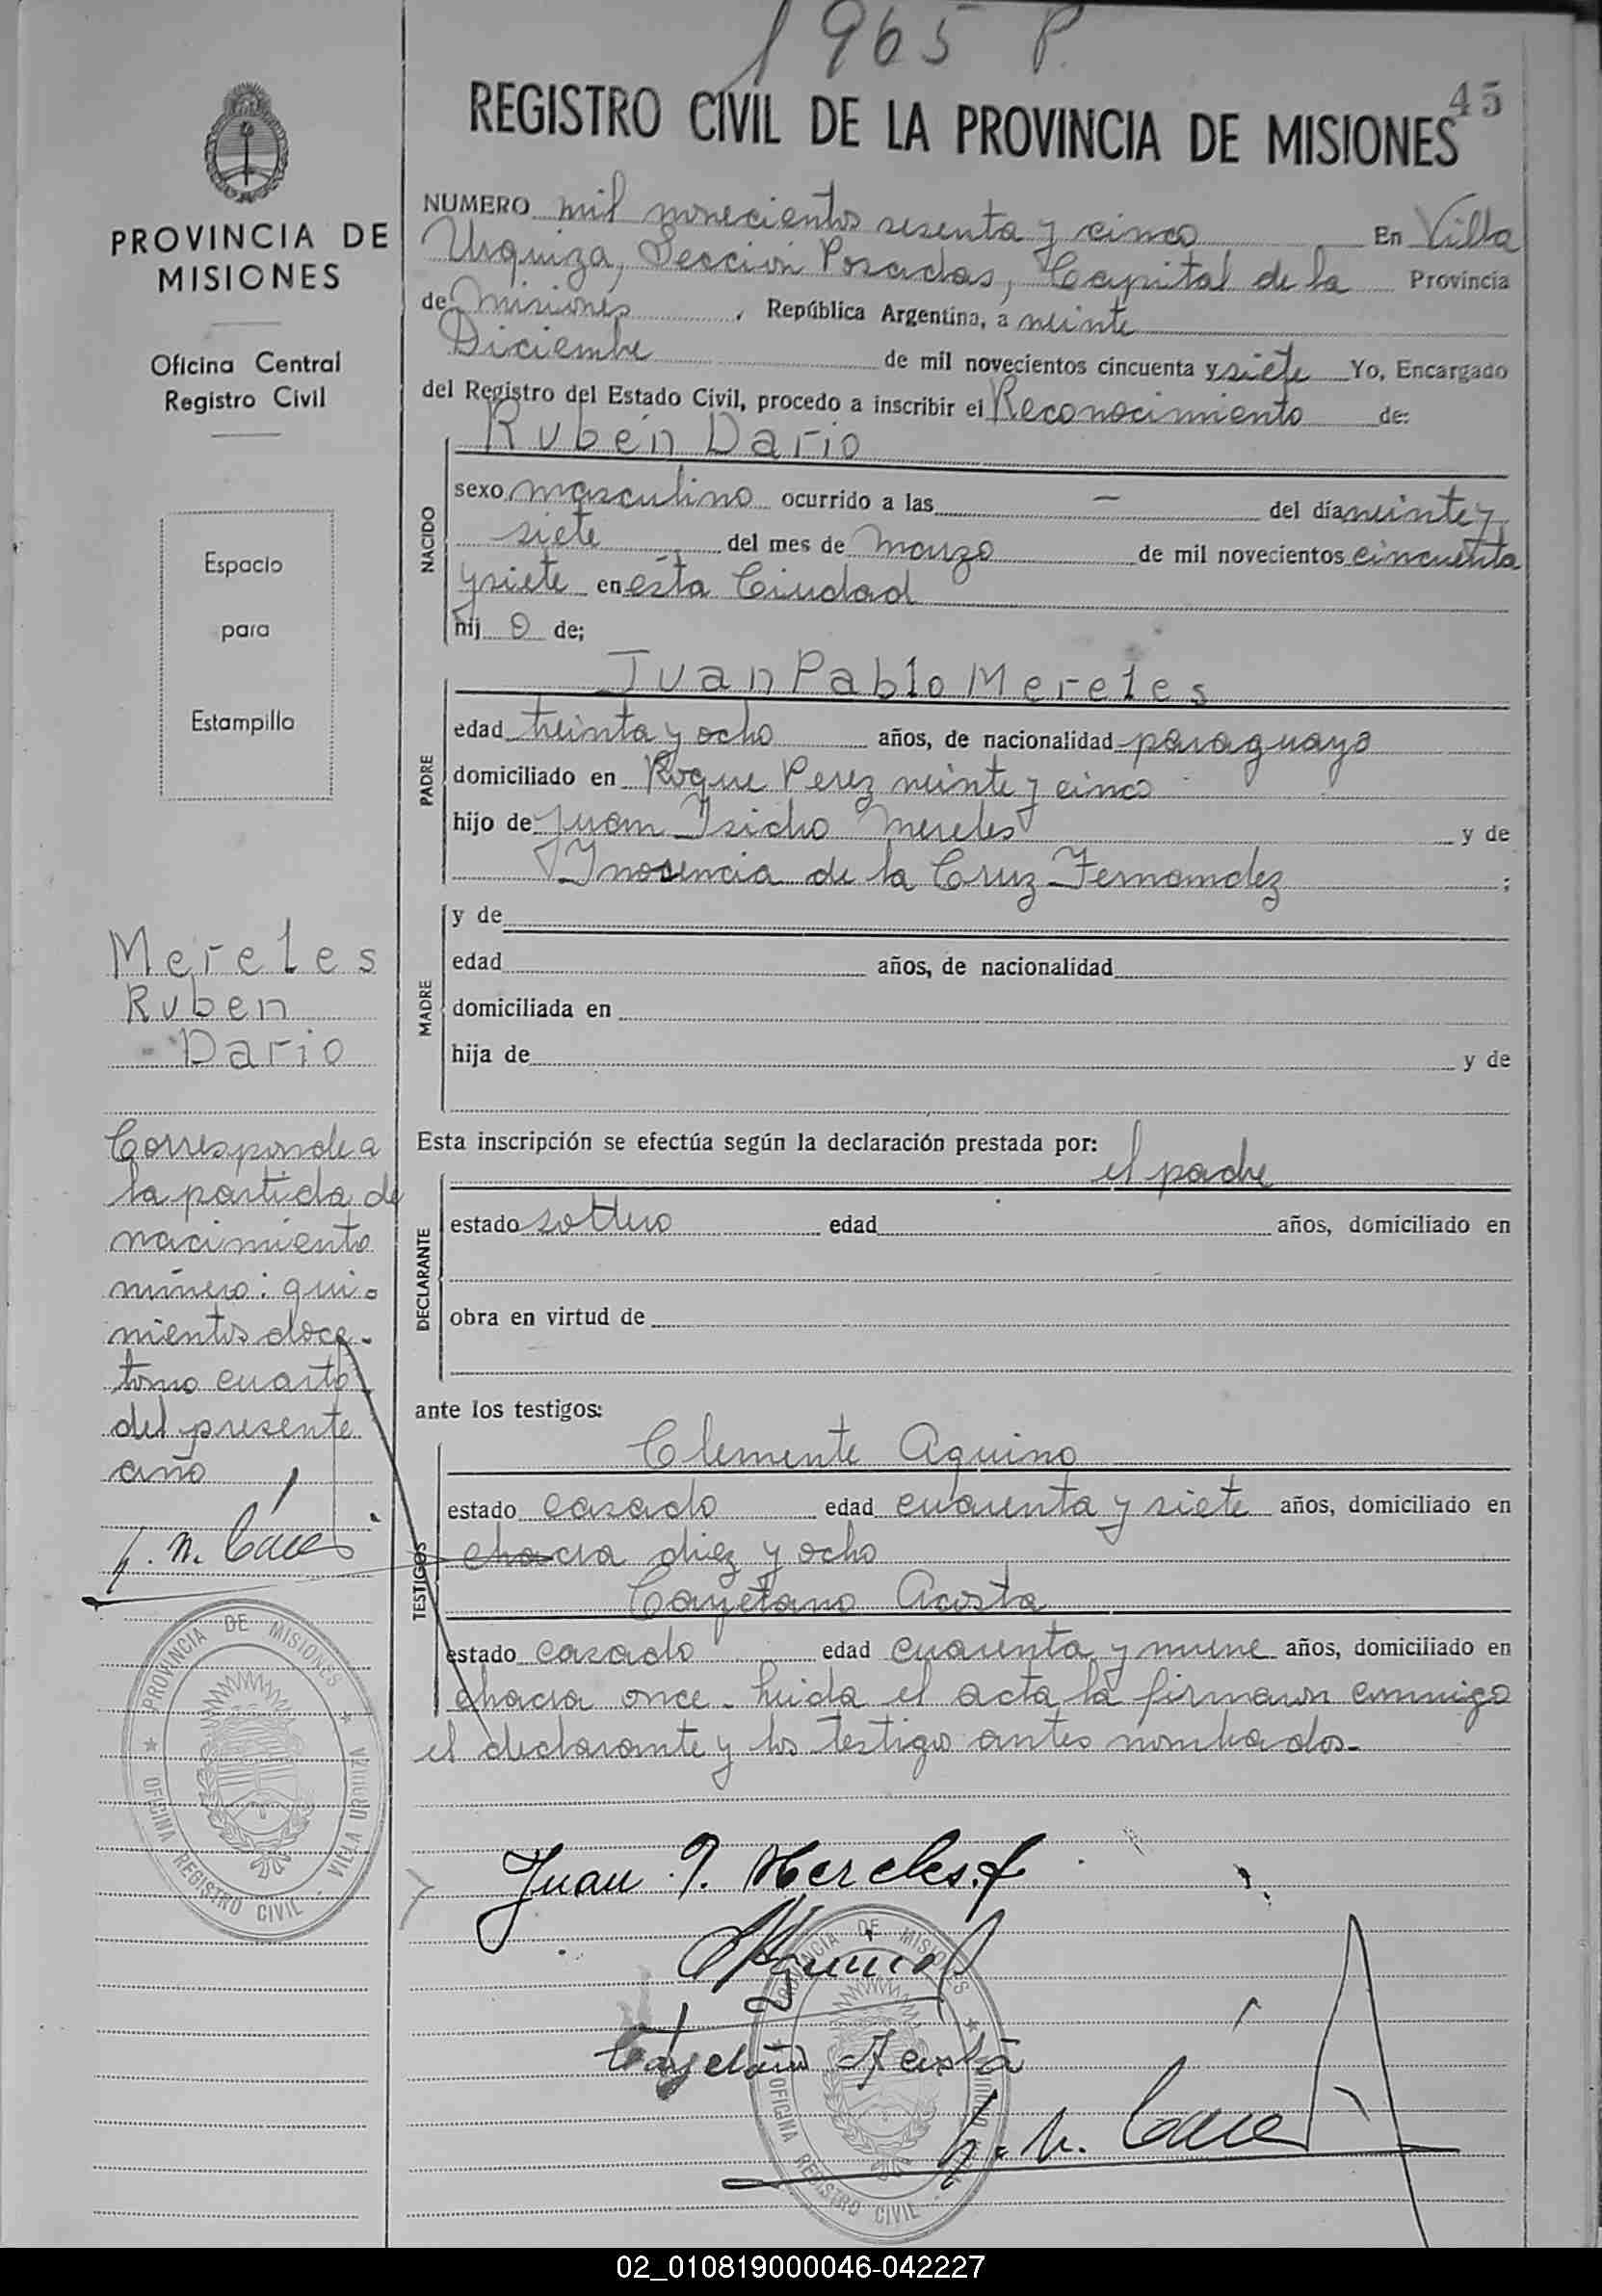 1965 P.
45
REGISTRO CIVIL DE LA PROVINCIA DE MISIONES
PROVINCIA DE
MISIONES
Oficina Central
Registro Civil
Espacio
para
Estampilla
Mereles
Ruben
Dario
Corresponde a
la partida de
nacimiento
número: qui-
nientos doce-
tomo cuarto
del presente
año
PROVINCIA DE MISIONES
OFICINA REGISTRO CIVIL - VILLA URQUIZA
NUMERO mil novecientos sesenta y cinco En Villa
Urquiza, Sección Posadas, Capital de la Provincia
de Misiones, República Argentina, a veinte
Diciembre de mil novecientos cincuenta y siete Yo, Encargado
del Registro del Estado Civil, procedo a inscribir el Reconocimiento de:
NACIDO
Rubén Dario
sexo masculino ocurrido a las — del día veinte y
siete del mes de Marzo de mil novecientos cincuenta
y siete en ésta Ciudad
hijo de;
PADRE
Juan Pablo Mereles
edad treinta y ocho años, de nacionalidad paraguaya
domiciliado en Roque Perez veinte y cinco
hijo de Juan Isidro Mereles y de
Inocencia de la Cruz Fernandez ;
MADRE
y de
edad años, de nacionalidad
domiciliada en
hija de y de
Esta inscripción se efectúa según la declaración prestada por:
el padre
DECLARANTE
estado soltero edad años, domiciliado en
obra en virtud de
ante los testigos:
TESTIGOS
Clemente Aquino
estado casado edad cuarenta y siete años, domiciliado en
chacra diez y ocho
Cayetano Acosta
estado casado edad cuarenta y nueve años, domiciliado en
chacra once. Leida el acta la firmaron conmigo
el declarante y los testigos antes nombrados.-
Juan P. Mereles. f
Cayetano Acosta
PROVINCIA DE MISIONES
OFICINA REGISTRO CIVIL
02_010819000046-042227